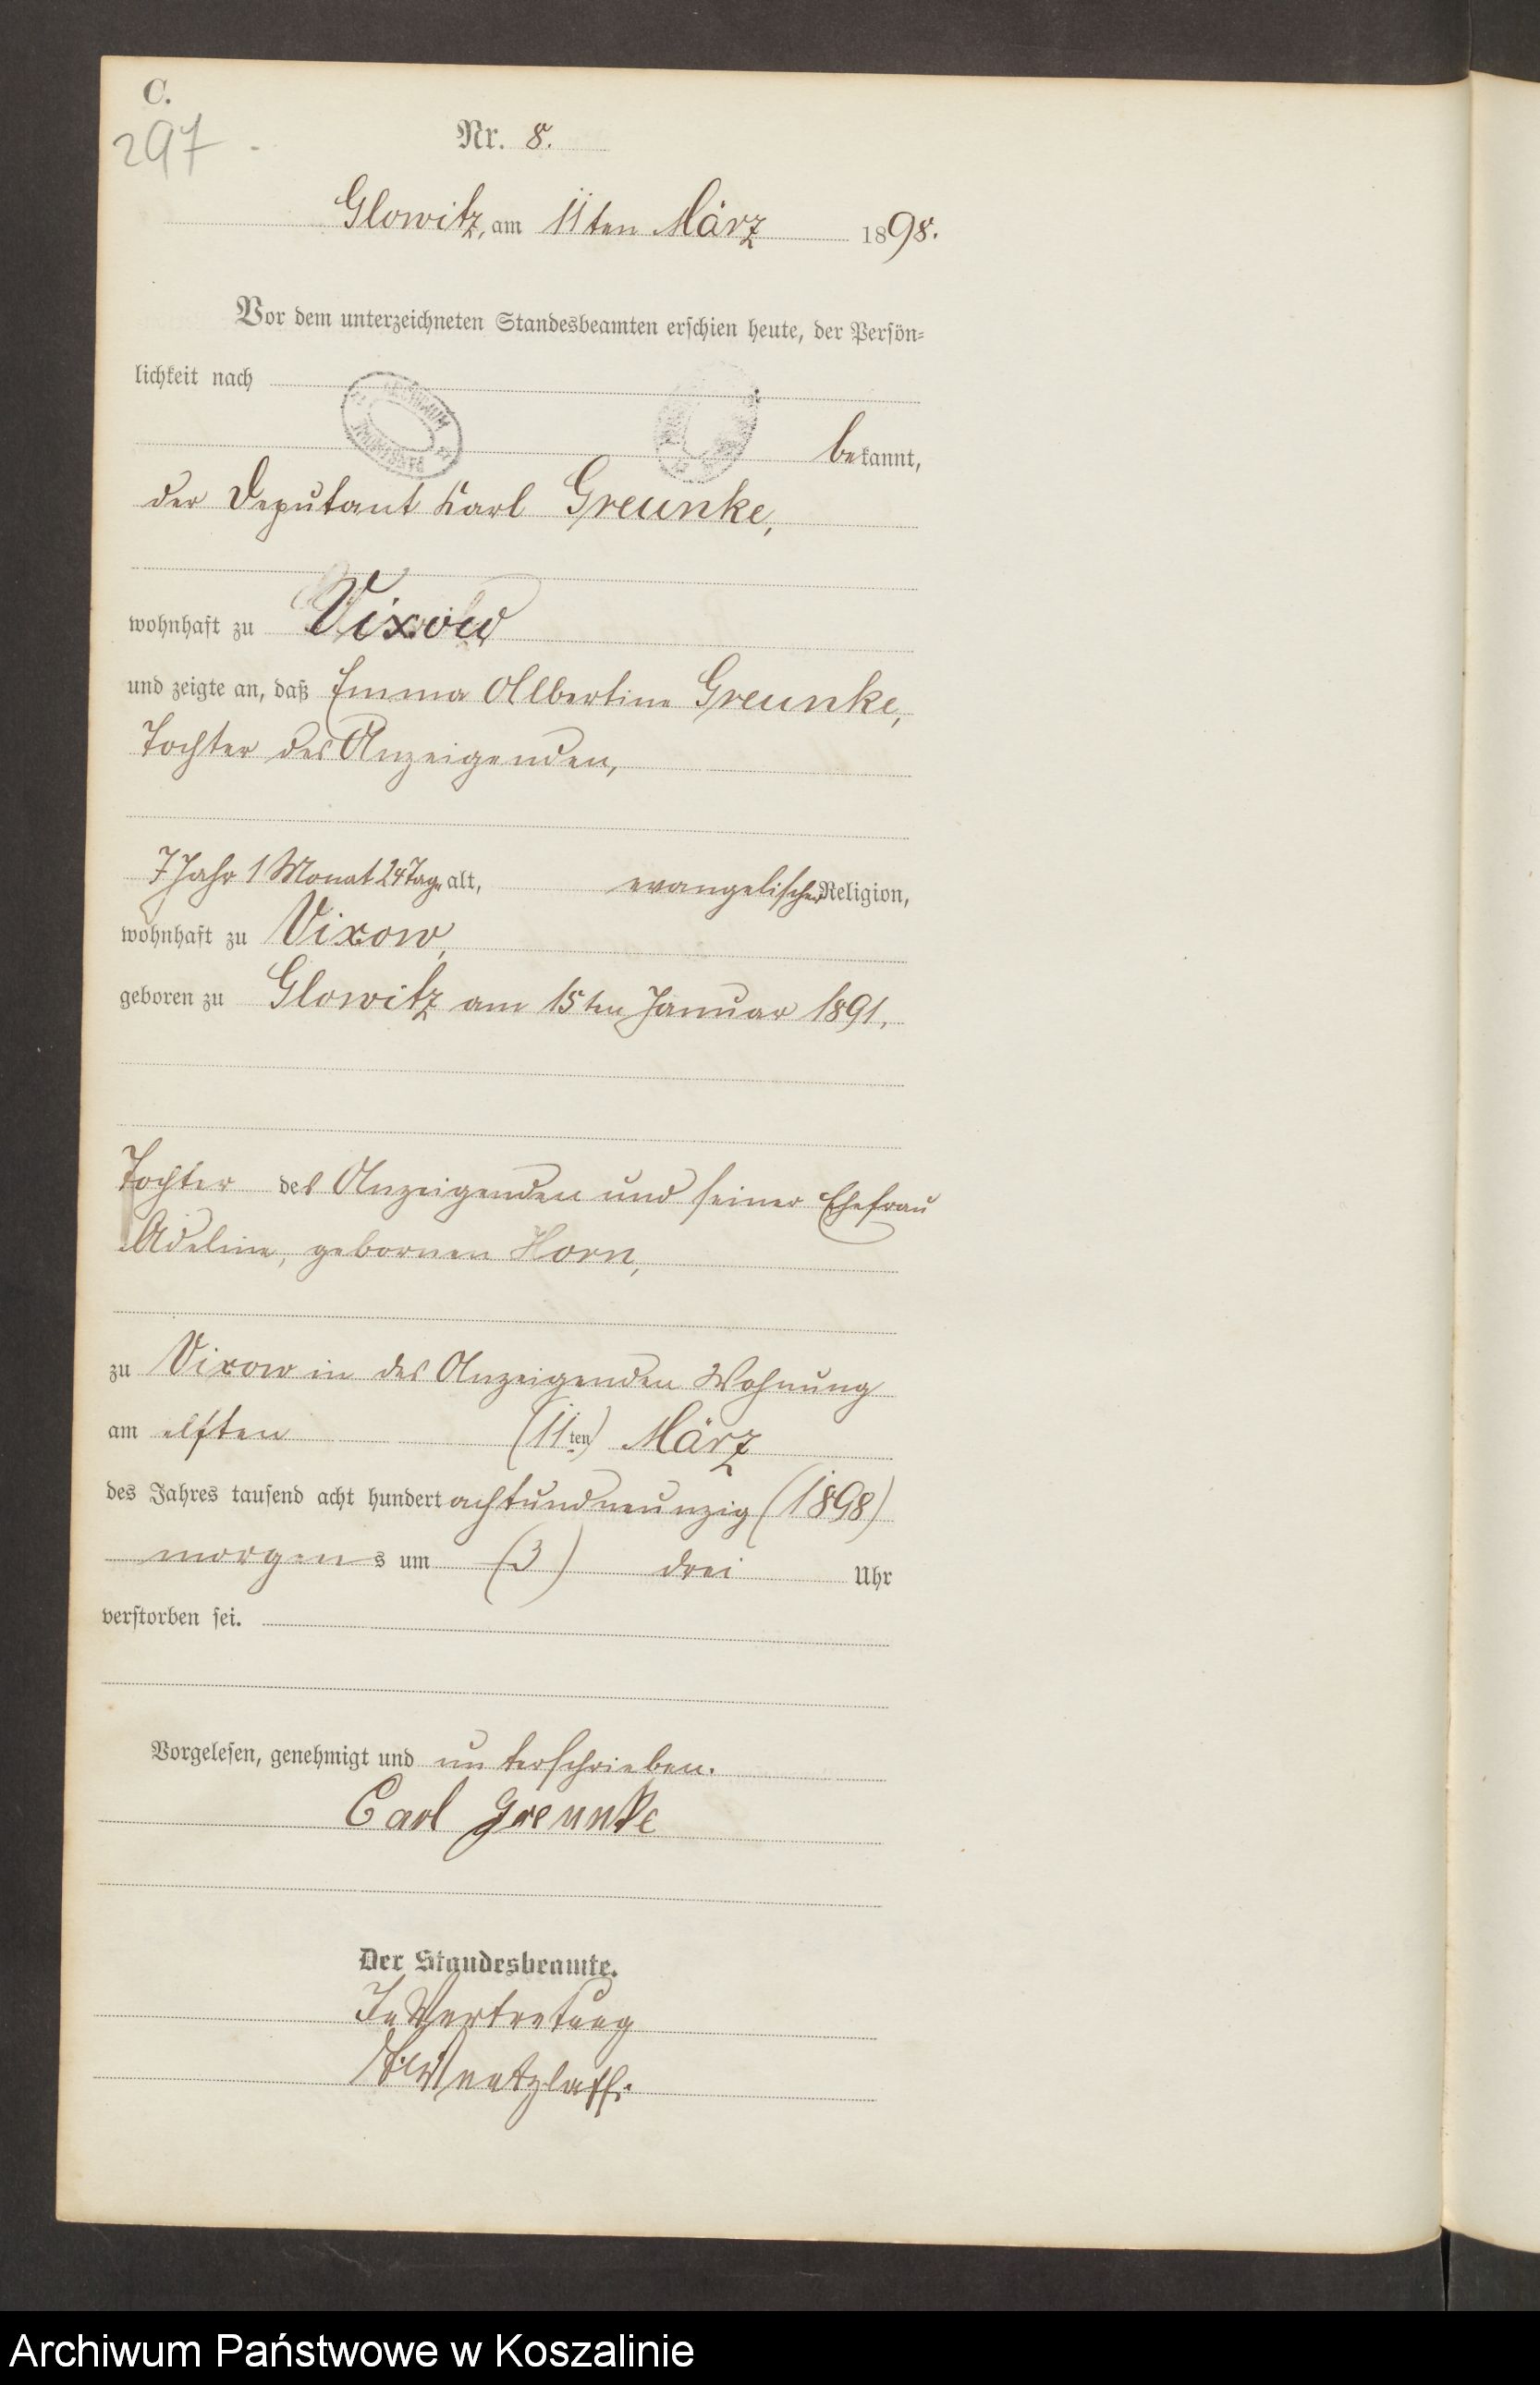 C.
297.
Nr. 8.
Glowitz, am 11ten März 1898.
Vor dem unterzeichneten Standesbeamten erschien heute, der Persön-
lichkeit nach
bekannt,
der Deputant Karl Greunke,
wohnhaft zu Vixow
und zeigte an, daß Emma Albertine Greunke,
Tochter des Anzeigenden,
7 Jahr 1 Monat 24 Tage alt, evangelischer Religion,
wohnhaft zu Vixow,
geboren zu Glowitz am 15ten Januar 1891,
Tochter des Anzeigenden und seiner Ehefrau
Adeline, gebornen Horn,
zu Vixow in des Anzeigenden Wohnung
am elften (11ten) März
des Jahres tausend acht hundert achtundneunzig (1898)
morgens um (3) drei Uhr
verstorben sei.
Vorgelesen, genehmigt und unterschrieben.
Carl Greunke
Der Standesbeamte.
In Vertretung
Archiwum Państwowe w Koszalinie